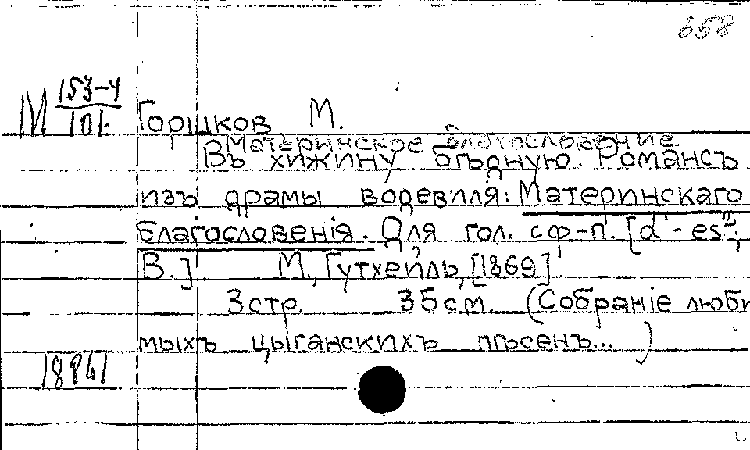 658
М 153-4
101
Горшков М.
Материнское благословение
Въ хижину бѣдную. Романсъ
изъ драмы водевиля: Материнскаго
благословенія. Для гол. с ф-п. [d'-es²;
В.] М., Гутхейль, [1869].
3 стр. 35 см. (Собраніе люби
мыхъ цыганскихъ пѣсенъ... )